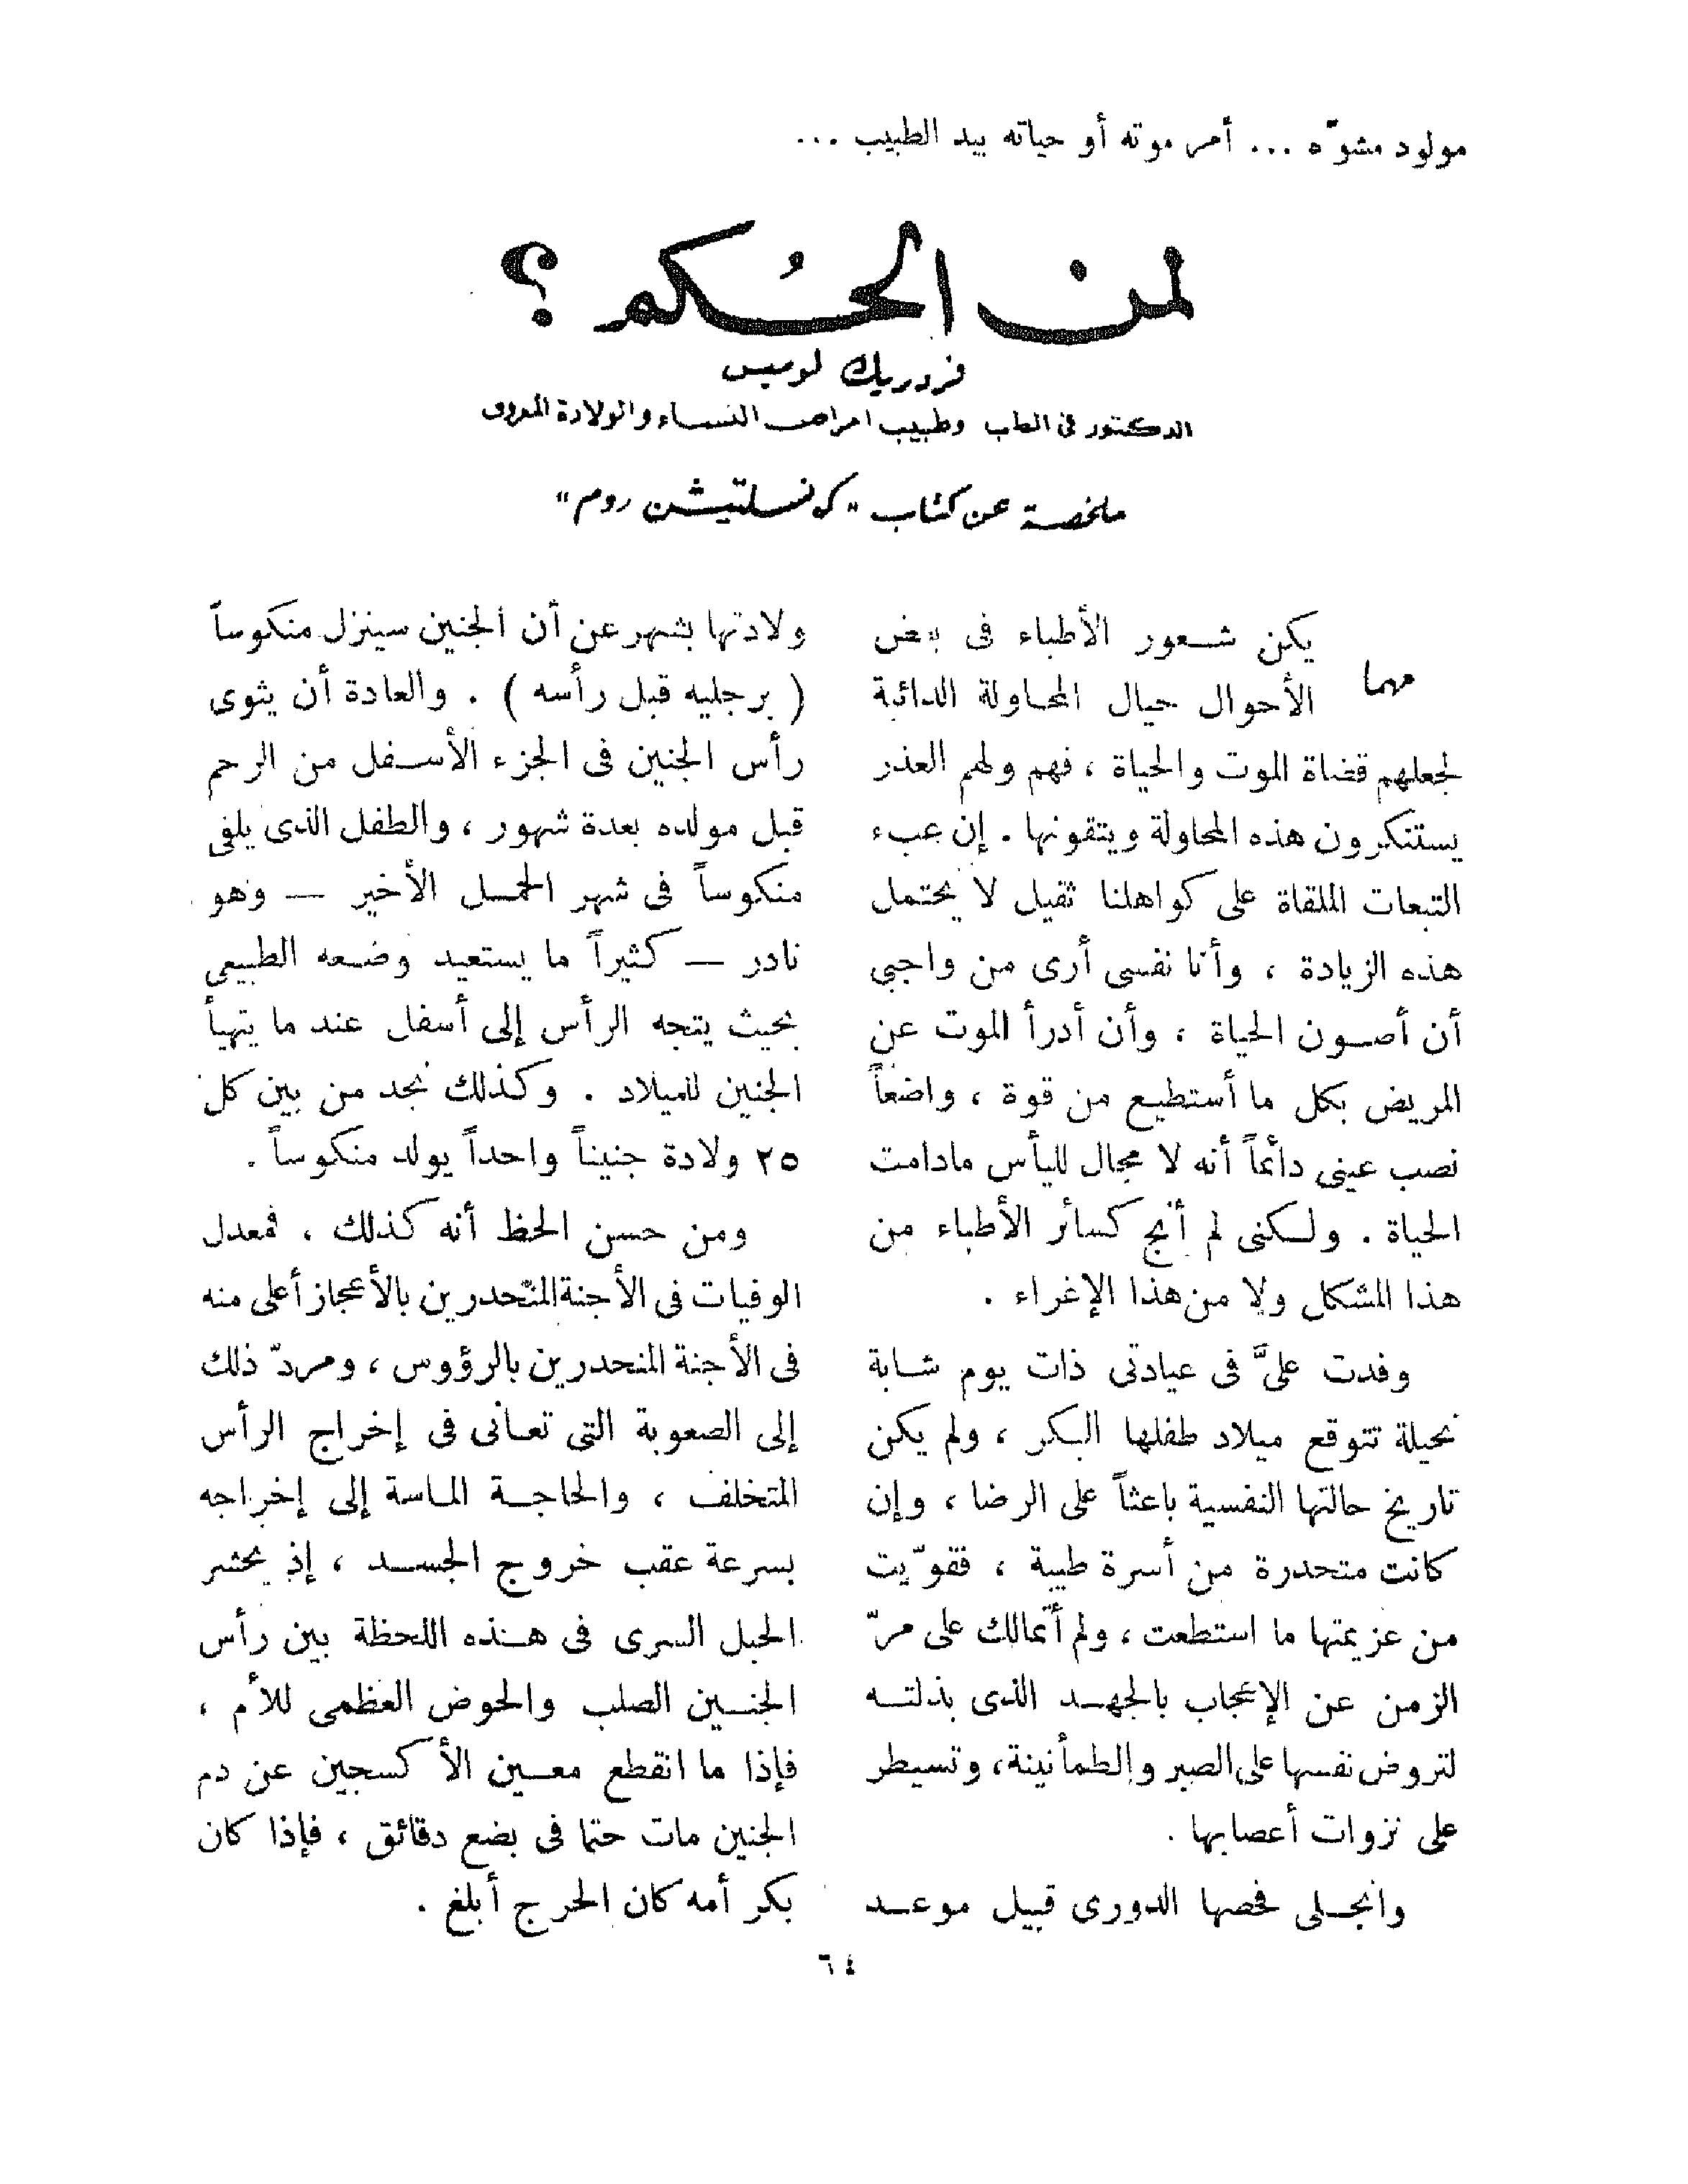 مولود مشوّه ... أمر موته أو حياته بيد الطبيب ...
لمن الحُكم ؟
فردريك لوميس
الدكتور فى الطب وطبيب امراض النساء والولادة المعروف
ملخصة عن كتاب "كونسلتيشن روم"
مهما يكن شعور الأطباء فى بعض
الأحوال حيال المحاولة الدائبة
لجعلهم قضاة الموت والحياة ، فهم ولهم العذر
يستنكرون هذه المحاولة ويتقونها . إن عبء
التبعات الملقاة على كواهلنا ثقيل لا يحتمل
هذه الزيادة ، وأنا نفسى أرى من واجبى
أن أصون الحياة ، وأن أدرأ الموت عن
المريض بكل ما أستطيع من قوة ، واضعاً
نصب عينى دائماً أنه لا مجال لليأس مادامت
الحياة . ولكنى لم أنج كسائر الأطباء من
هذا المشكل ولا من هذا الإغراء .
وفدت علىَّ فى عيادتى ذات يوم شابة
نحيلة تتوقع ميلاد طفلها البكر ، ولم يكن
تاريخ حالتها النفسية باعثاً على الرضا ، وإن
كانت متحدرة من أسرة طيبة ، فقوّيت
من عزيمتها ما استطعت ، ولم أتمالك على مرّ
الزمن عن الإعجاب بالجهد الذى بذلته
لتروض نفسها على الصبر والطمأنينة، وتسيطر
على نزوات أعصابها .
وانجلى فحصها الدورى قبيل موعد
ولادتها بشهر عن أن الجنين سينزل منكوساً
( برجليه قبل رأسه ) . والعادة أن يثوى
رأس الجنين فى الجزء الأسفل من الرحم
قبل مولده بعدة شهور ، والطفل الذى يلفى
منكوساً فى شهر الحمل الأخير — وهو
نادر — كثيراً ما يستعيد وضعه الطبيعى
بحيث يتجه الرأس إلى أسفل عند ما يتهيأ
الجنين للميلاد . وكذلك نجد من بين كل
٢٥ ولادة جنيناً واحداً يولد منكوساً .
ومن حسن الحظ أنه كذلك ، فمعدل
الوفيات فى الأجنة المنحدرين بالأعجاز أعلى منه
فى الأجنة المنحدرين بالرؤوس ، ومردّ ذلك
إلى الصعوبة التى تعانى فى إخراج الرأس
المتخلف ، والحاجة الماسة إلى إخراجه
بسرعة عقب خروج الجسد ، إذ يحشر
الحبل السرى فى هذه اللحظة بين رأس
الجنين الصلب والحوض العظمى للأم ،
فإذا ما انقطع معين الأكسجين عن دم
الجنين مات حتما فى بضع دقائق ، فإذا كان
بكر أمه كان الحرج أبلغ .
٦٤